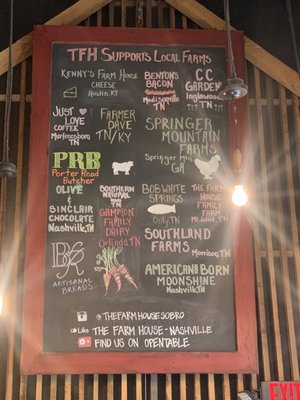 TFH SUPPORTS LOCAL FARMS
KENNY'S FARM HOUSE
CHEESE
Austin, KY
BENTON'S
BACON
Madisonville
TN
CC
GARDEN
Inglewood,
TN
JUST
LOVE
COFFEE
Murfreesboro
TN
FARMER
DAVE
TN/KY
SPRINGER
MOUNTAIN
FARMS
Springer Mtn
GA
PRB
Porter Road
Butcher
OLIVE
&
SINCLAIR
CHOCOLATE
Nashville TN
SOUTHERN
NATURAL
TN
FAMILY
DAIRY
TN
BOB WHITE
SPRINGS
TN
THE FARM
HOUSE
FAMILY
FARM
Mt. Juliet, TN
SOUTHLAND
FARMS
Morrison, TN
B&R
ARTISANAL
BREADS
AMERICAN BORN
MOONSHINE
Nashville, TN
@THEFARMHOUSESOBRO
Like THE FARM HOUSE-NASHVILLE
FIND US ON OPENTABLE
EXIT